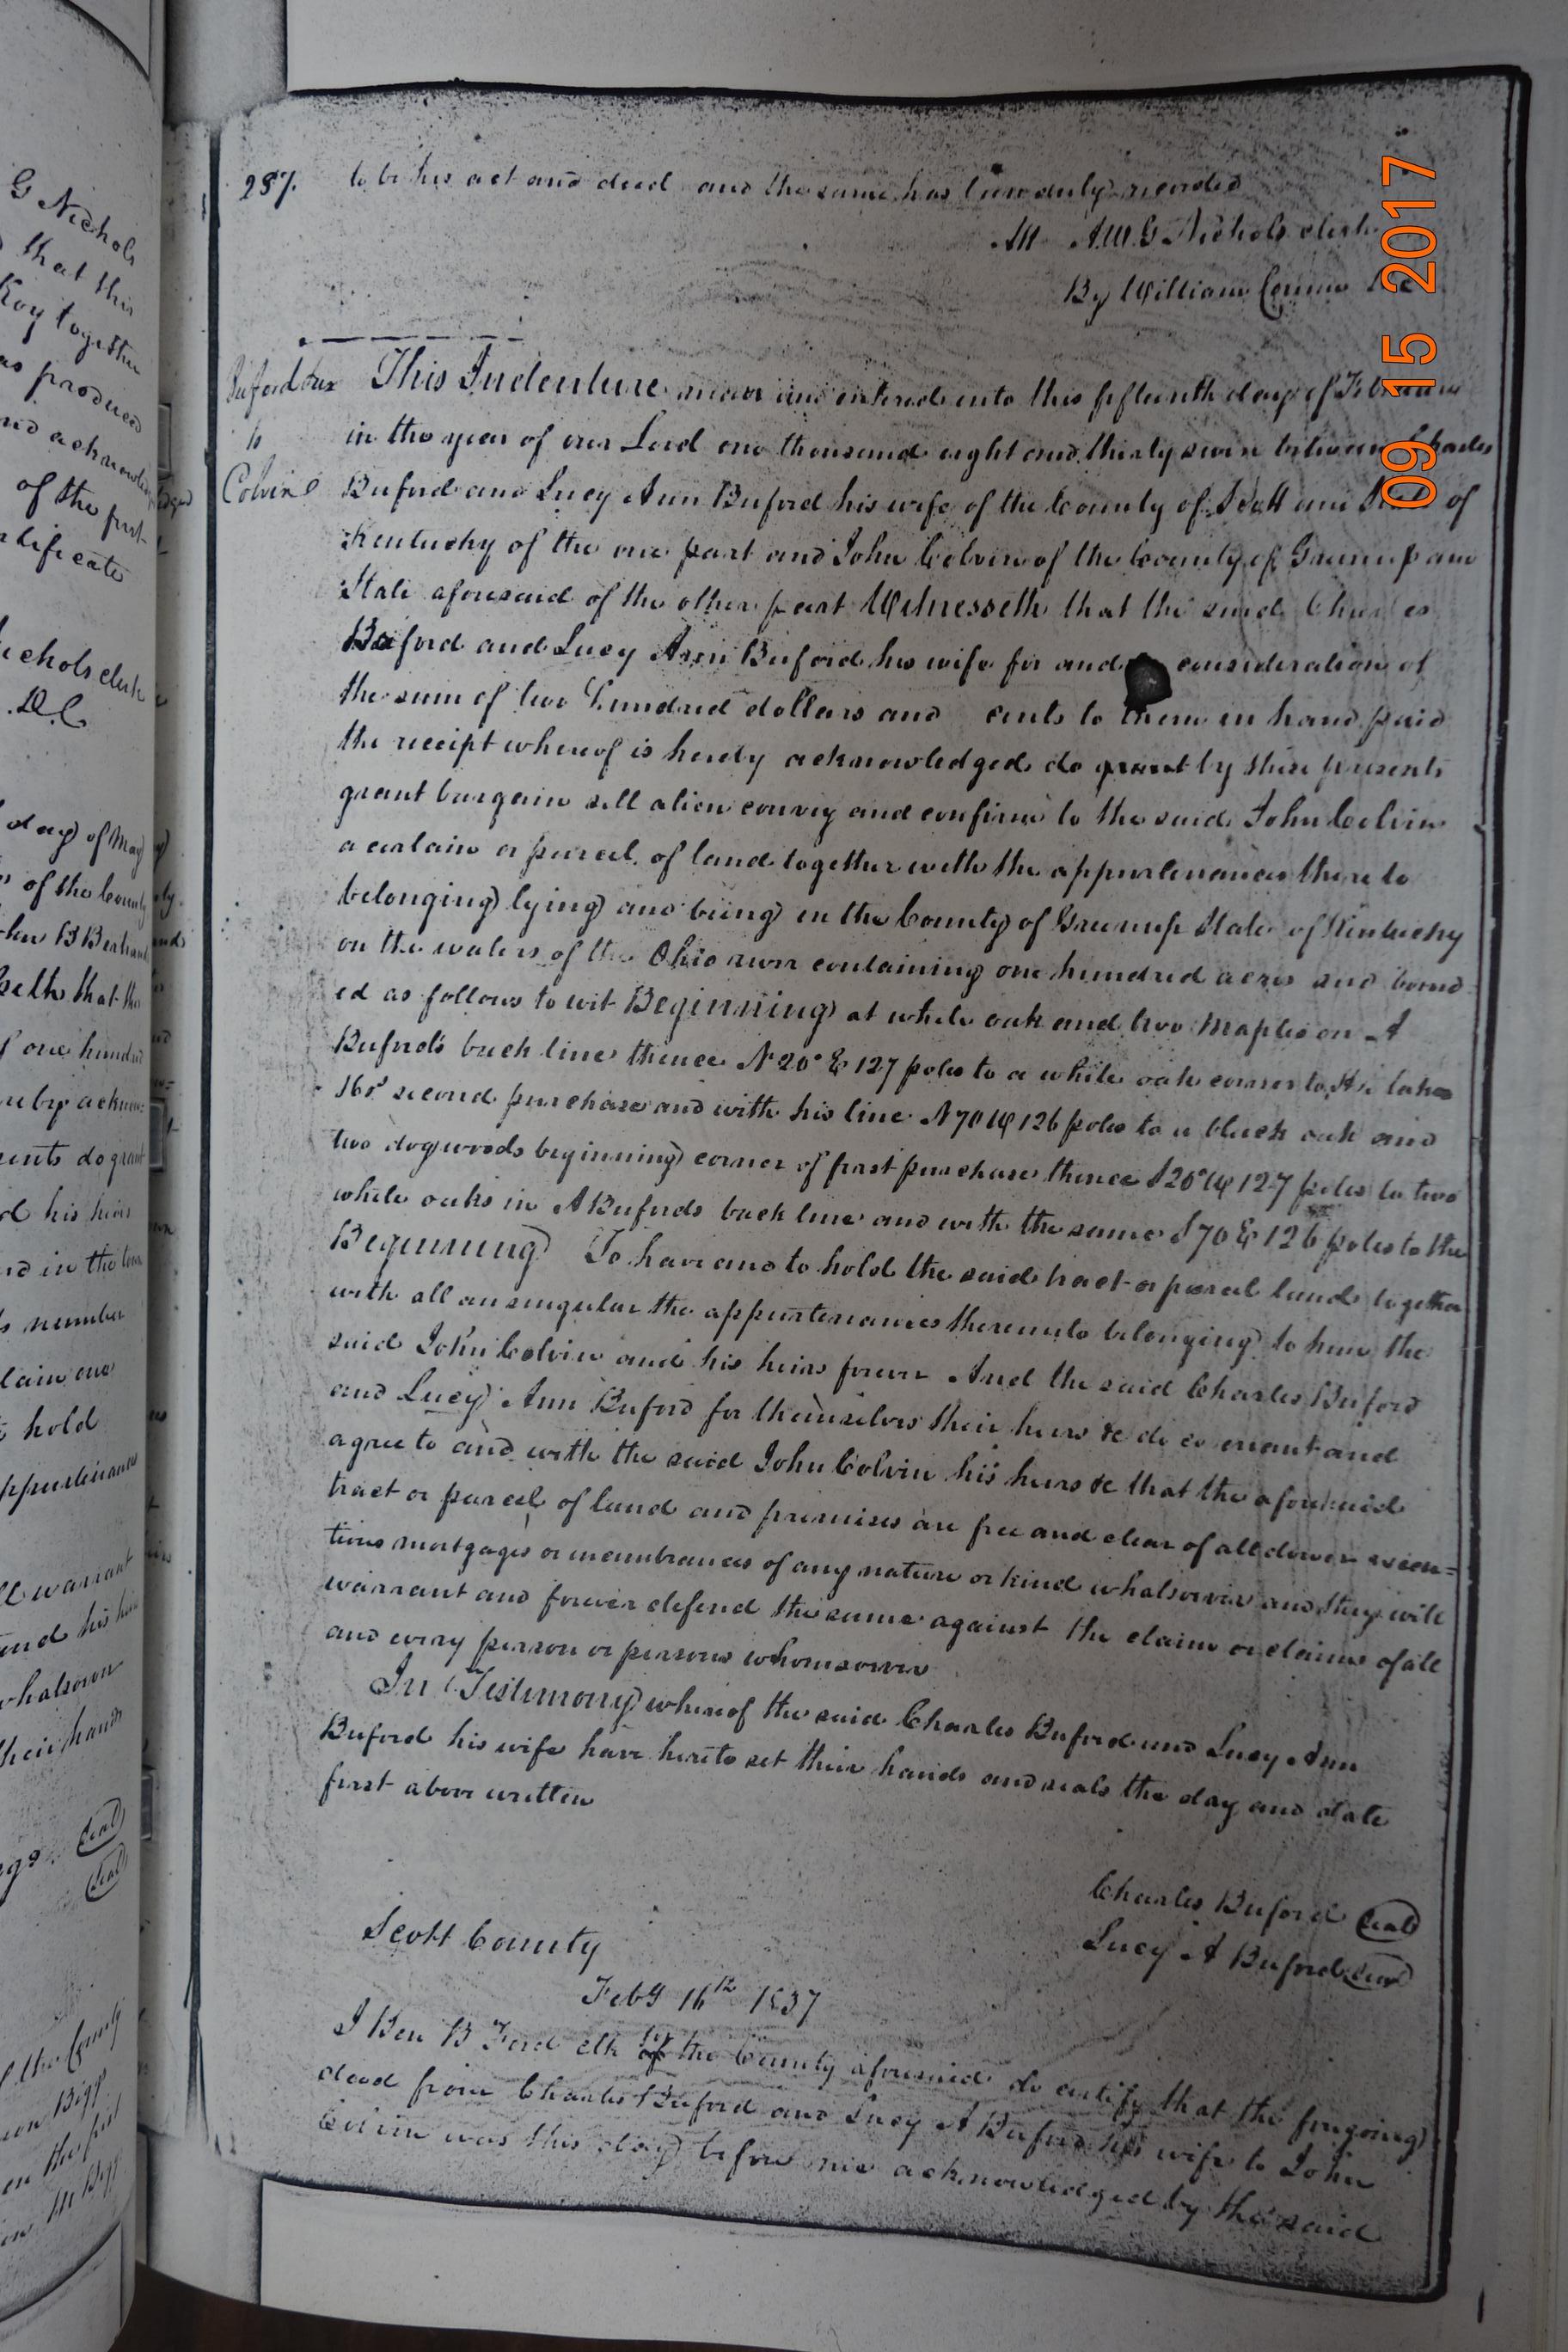 287. to be his act and deed and the same has been duly recorded
Att A.W.G Nichols clerk
By William Corum D.C
Buford & ux
to
Colvin
This Indenture made and entered into this fifteenth day of February
in the year of our Lord one thousand eight and thirty seven between Charles
Buford and Lucy Ann Buford his wife of the County of Scott and State of
Kentucky of the one part and John Colvin of the County of Greenup and
State aforesaid of the other part Witnesseth that the said Charles
Buford and Lucy Ann Buford his wife for and consideration of
the sum of two hundred dollars and cents to them in hand paid
the receipt whereof is hereby acknowledged do by these presents
grant bargain sell alien convey and confirm to the said John Colvin
a certain or parcel of land together with the appurtenances there to
belonging lying and being in the County of Greenup State of Kentucky
on the waters of the Ohio river containing one hundred acres and bound-
ed as follows to wit Beginning at white oak and two maples on A
Bufords back line thence N 20° E 127 poles to a white oak corner to
second purchase and with his line N 70 W 126 poles to a black oak and
two dogwoods beginning corner of first purchase thence S 20° W 127 poles to two
white oaks in A Bufords back line and with the same S 70 E 126 poles to the
Beginning To have and to hold the said tract or parcel land together
with all an singular the appurtenances thereunto belonging to him the
said John Colvin and his heirs forever And the said Charles Buford
and Lucy Ann Buford for themselves their heirs &c do covenant and
agree to and with the said John Colvin his heirs &c that the aforesaid
tract or parcel of land and premises are free and clear of all dower execu=
tions mortgages or incumbrances of any nature or kind whatsoever and they will
warrant and forever defend the same against the claim or claims of all
and every person or persons whomsoever
In Testimony whereof the said Charles Buford and Lucy Ann
Buford his wife have hereto set their hands and seals the day and date
first above written
Charles Buford Seal
Lucy A Buford Seal
Scott County
Feby 16th 1837
I Ben B Ford clk of the County aforesaid do certify that the foregoing
deed from Charles Buford and Lucy A Buford his wife to John
Colvin was this day before me acknowledged by the said
09 15 2017
G Nichols
that this
together
as produced
of the first
tificate
Nichols clerk
D.C
day of May
of the County
seth that the
one hundred
ents do grant
his heirs
number
hold
appurtenances
warrant
whatsoever
their hands
Seal
Seal
the County